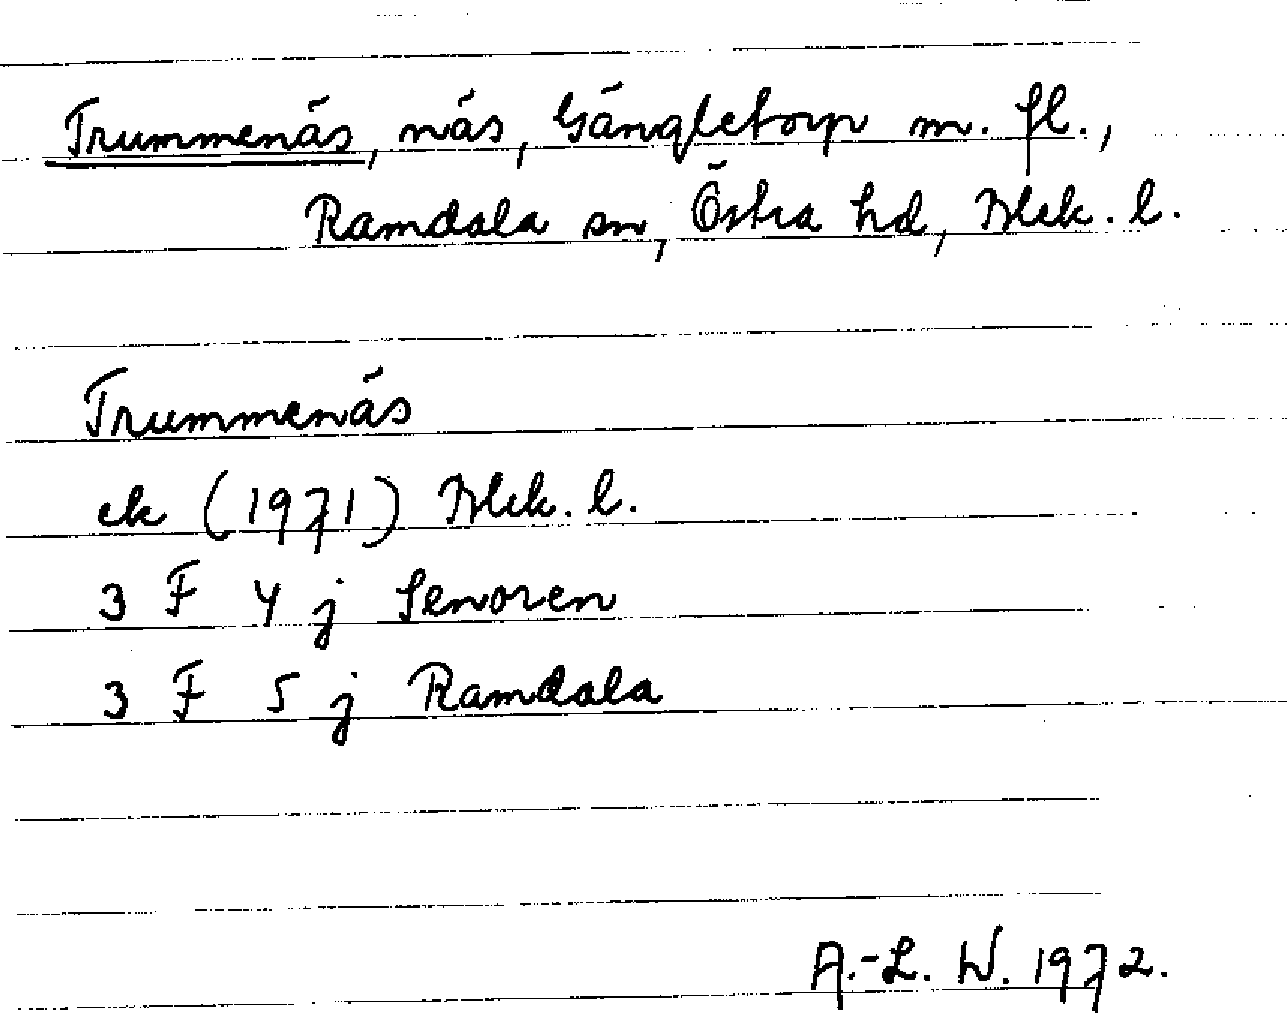 Trummenäs, näs, Gängletorp m. fl.,
Ramdala sn, Östra hd, Blek. l.
Trummenäs
ek (1971) Blek. l.
3 F 4 j Senoren
3 F 5 j Ramdala
A.-L. W. 1972.